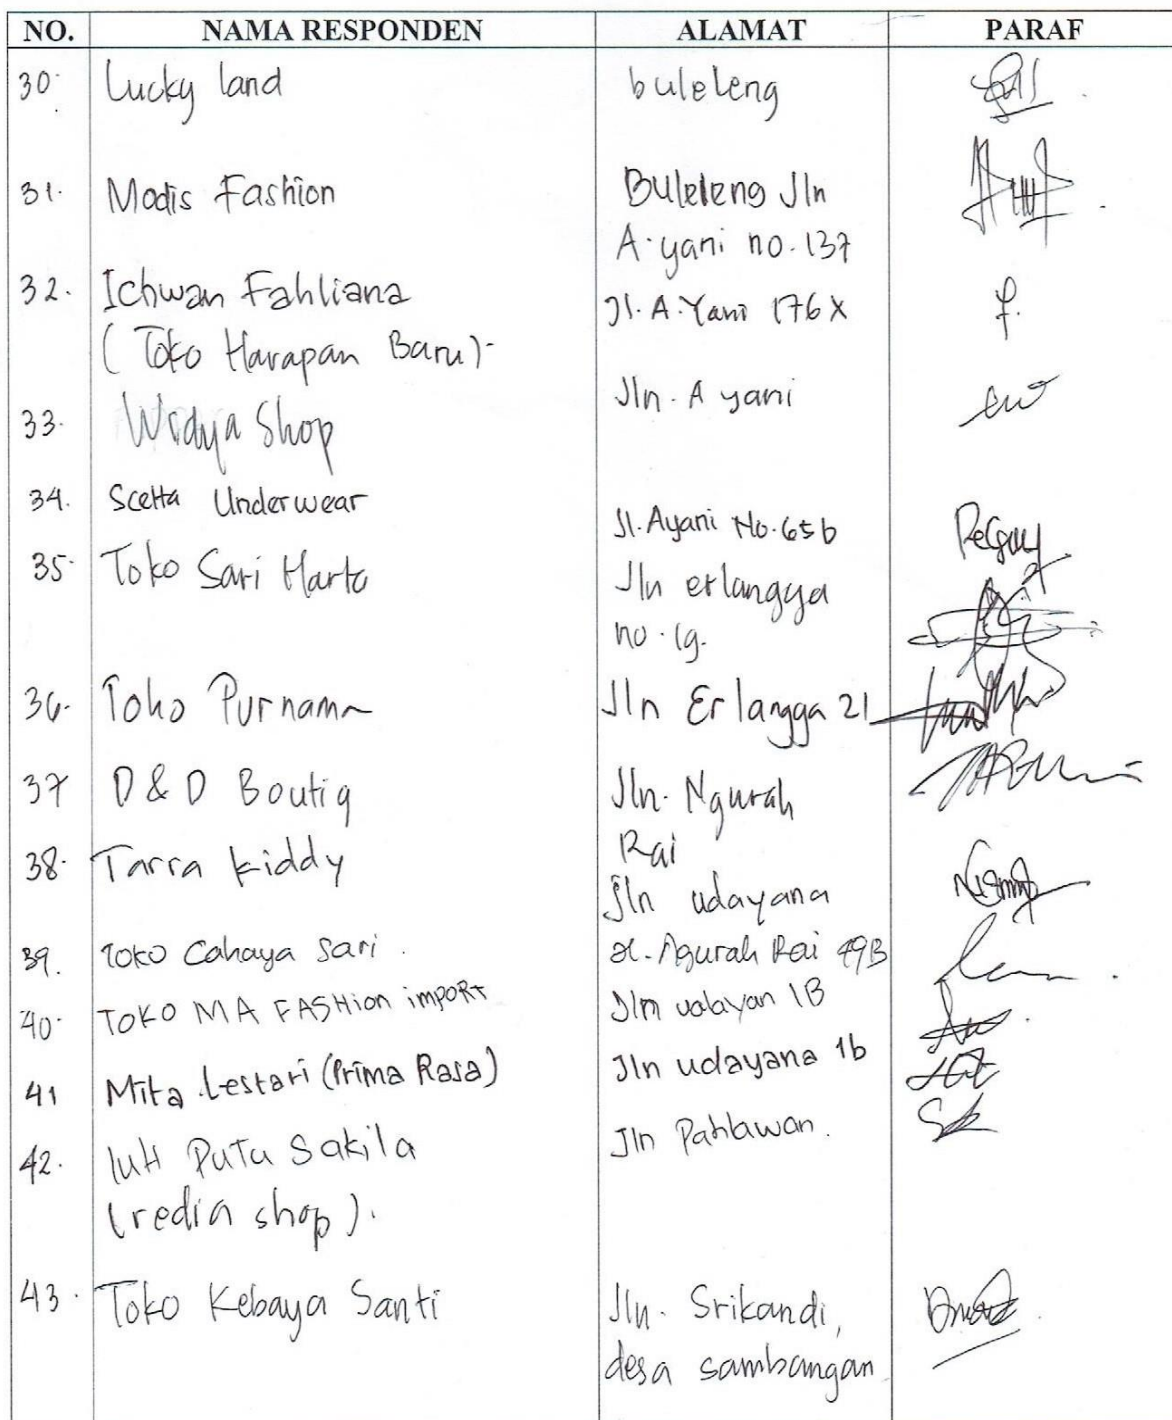 NO. NAMA RESPONDEN ALAMAT PARAF
30. Lucky land buleleng
31. Modis Fashion Buleleng Jln
A. yani no. 137
32. Ichwan Fahliana Jl. A. Yani 176 X
(Toko Harapan Baru)
33. Widya Shop Jln. A yani
34. Scetta Underwear Jl. Ayani No. 65b
35. Toko Sari Harta Jln erlangga
no. 19.
36. Toko Purnama Jln Erlangga 21
37 D & D Boutiq Jln. Ngurah
Rai
38. Tarra kiddy jln udayana
39. Toko Cahaya Sari. Jl. Ngurah Rai 49B
40. TOKO MA FASHion impORT Jln 1B
41 Mita Lestari (Prima Rasa) Jln udayana 1b
42. luH PuTu Sakila Jln Pahlawan.
(redia shop).
43. Toko Kebaya Santi Jln. Srikandi,
desa sambangan